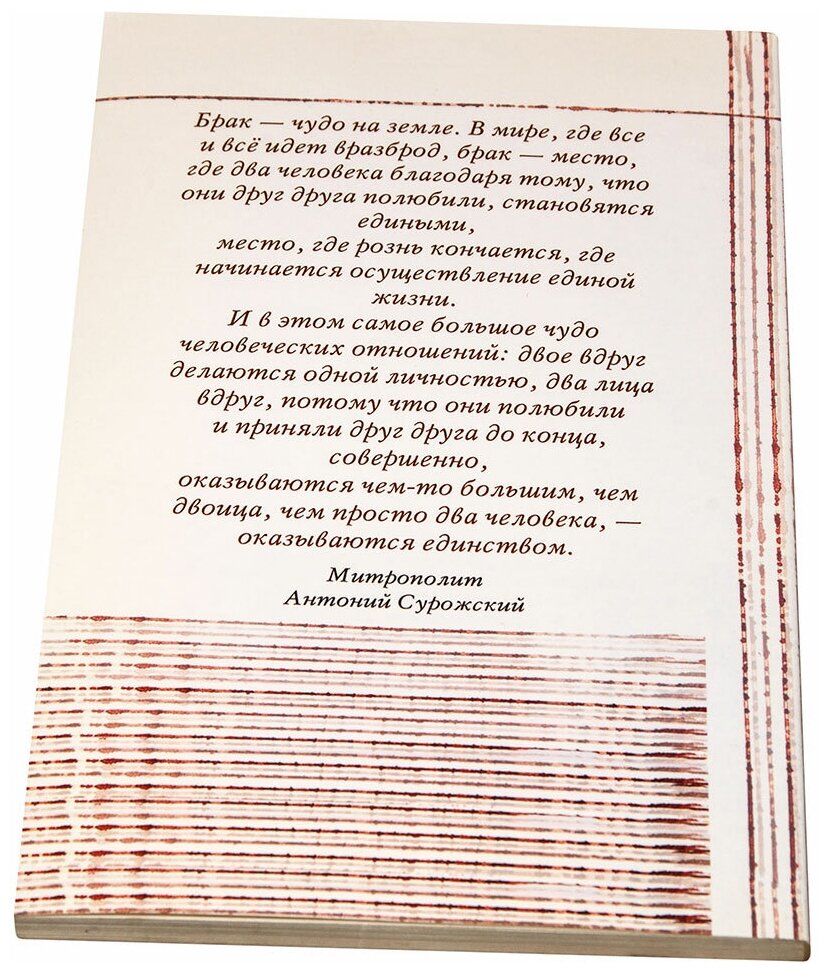 Брак — чудо на земле. В мире, где все
и всё идет вразброд, брак — место,
где два человека благодаря тому, что
они друг друга полюбили, становятся
едиными,
место, где рознь кончается, где
начинается осуществление единой
жизни.
И в этом самое большое чудо
человеческих отношений: двое вдруг
делаются одной личностью, два лица
вдруг, потому что они полюбили
и приняли друг друга до конца,
совершенно,
оказываются чем-то большим, чем
двоица, чем просто два человека, —
оказываются единством.
Митрополит
Антоний Сурожский